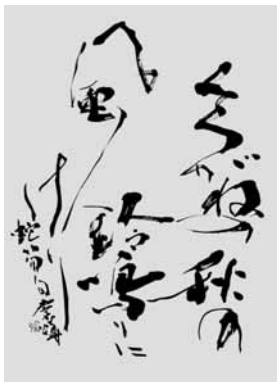 くろがねの秋の
風
鈴鳴りに
けり
蛇笏句